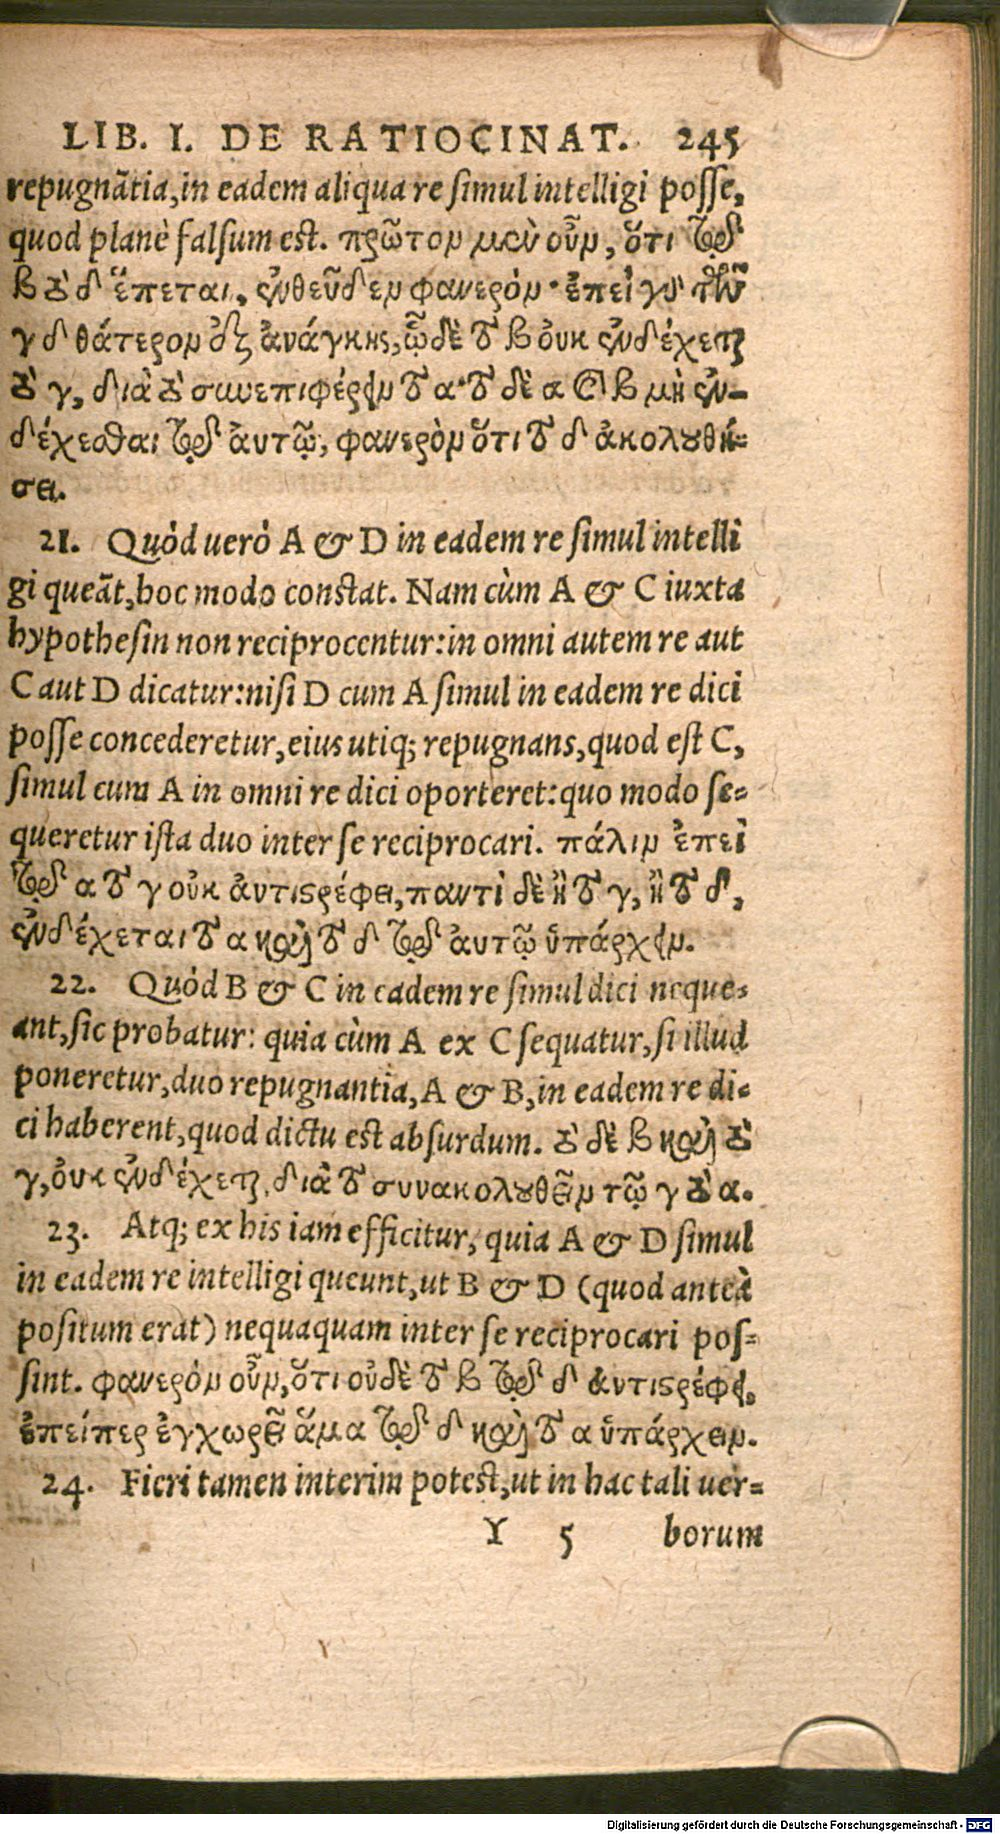 LIB. I. DE RATIOCINAT. 245
repugnãtia, in eadem aliqua re simul intelligi posse,
quod planè falsum est. πρῶτον μὲν οὖν, ὅτι τῷ
β τὸ δ ἕπεται, ἐνθεῦδεν φανερόν· ἐπεὶ γὰρ τῶν
γ δ θάτερον ἐξ ἀνάγκης, ᾧ δὲ τὸ β οὐκ ἐνδέχεται
τὸ γ, διὰ τὸ συνεπιφέρειν τὸ α· τὸ δὲ α καὶ β μὴ ἐν-
δέχεσθαι τῷ αὐτῷ, φανερὸν ὅτι τὸ δ ἀκολουθή-
σει.
21. Quòd uerò A & D in eadem re simul intelli
gi queãt, hoc modo constat. Nam cùm A & C iuxta
hypothesin non reciprocentur: in omni autem re aut
C aut D dicatur: nisi D cum A simul in eadem re dici
posse concederetur, eius utiq; repugnans, quod est C,
simul cum A in omni re dici oporteret: quo modo se-
queretur ista duo inter se reciprocari. πάλιν ἐπεὶ
τῷ α τὸ γ οὐκ ἀντιστρέφει, παντὶ δὲ ἢ τὸ γ, ἢ τὸ δ,
ἐνδέχεται τὸ α καὶ τὸ δ τῷ αὐτῷ ὑπάρχειν.
22. Quòd B & C in eadem re simul dici neque-
ant, sic probatur: quia cùm A ex C sequatur, si illud
poneretur, duo repugnantia, A & B, in eadem re di-
ci haberent, quod dictu est absurdum. τὸ δὲ β καὶ τὸ
γ, οὐκ ἐνδέχεται, διὰ τὸ συνακολουθεῖν τῷ γ τὸ α.
23. Atq; ex his iam efficitur, quia A & D simul
in eadem re intelligi queunt, ut B & D (quod anteà
positum erat) nequaquam inter se reciprocari pos-
sint. φανερὸν οὖν, ὅτι οὐδὲ τὸ β τῷ δ ἀντιστρέφει,
ἐπείπερ ἐγχωρεῖ ἅμα τῷ δ καὶ τὸ α ὑπάρχειν.
24. Fieri tamen interim potest, ut in hac tali uer-
Y 5 borum
Digitalisierung gefördert durch die Deutsche Forschungsgemeinschaft - DFG